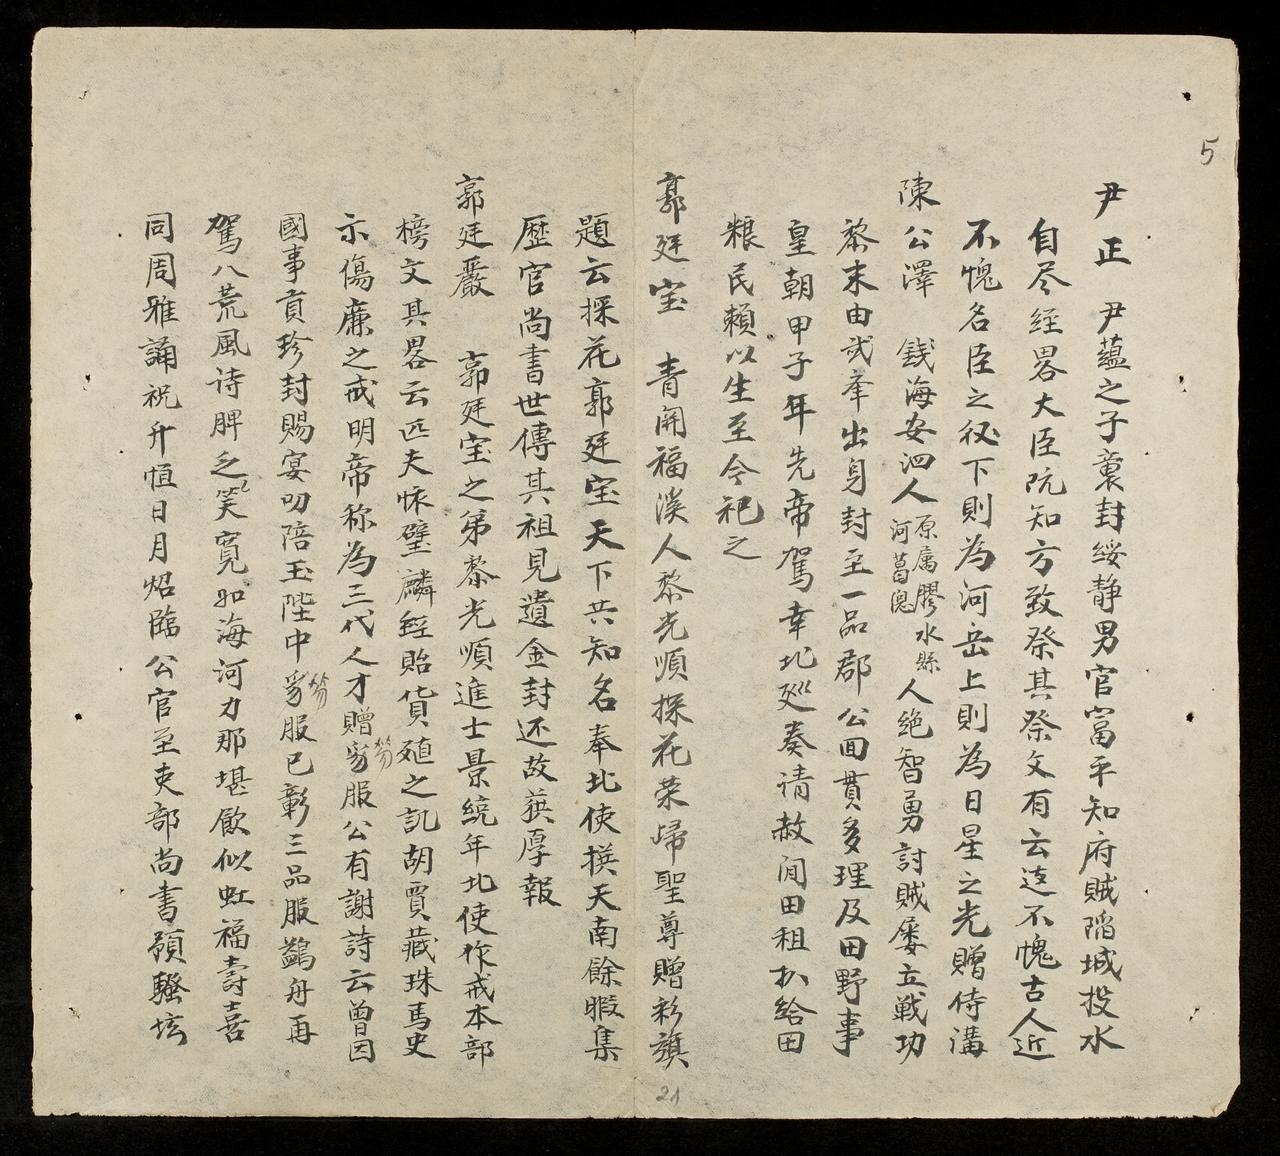 5
尹正　尹蘊之子襲封綏静男官富平知府賊陷城投水
自尽経畧大臣阮知方致祭其祭文有云遠不愧古人近
不愧名臣之後下則為河岳上則為日星之光贈侍講
陳公澤　錢海安泗人原属膠水縣河葛總人絶智勇討賊屡立戰功
黎末由武举出身封至一品郡公回貫多理及田野事
皇朝甲子年先帝駕幸北廵奏请赦閒田租扒給田
粮民賴以生至今祀之
郭廷宝　青開福溪人黎光順探花荣歸聖尊贈彩旗
題云探花郭廷宝天下共知名奉北使撰天南餘暇集
歷官尚書世傳其祖見遺金封还故获厚報
郭廷嚴　郭廷宝之弟黎光順進士景統年北使作戒本部
榜文其畧云匹夫怀璧麟經貽貨殖之訊胡賈藏珠馬史
示傷廉之戒明帝称為三代人才贈服公有謝詩云曾因
國事貢珍封賜宴叨陪玉陛中服已彰三品服鷁舟再
駕八荒風诗脾乏笑寬如海河力那堪飲似虹福壽喜
同周雅誦祝升恒日月炤臨公官至吏部尚書領騷坛
21